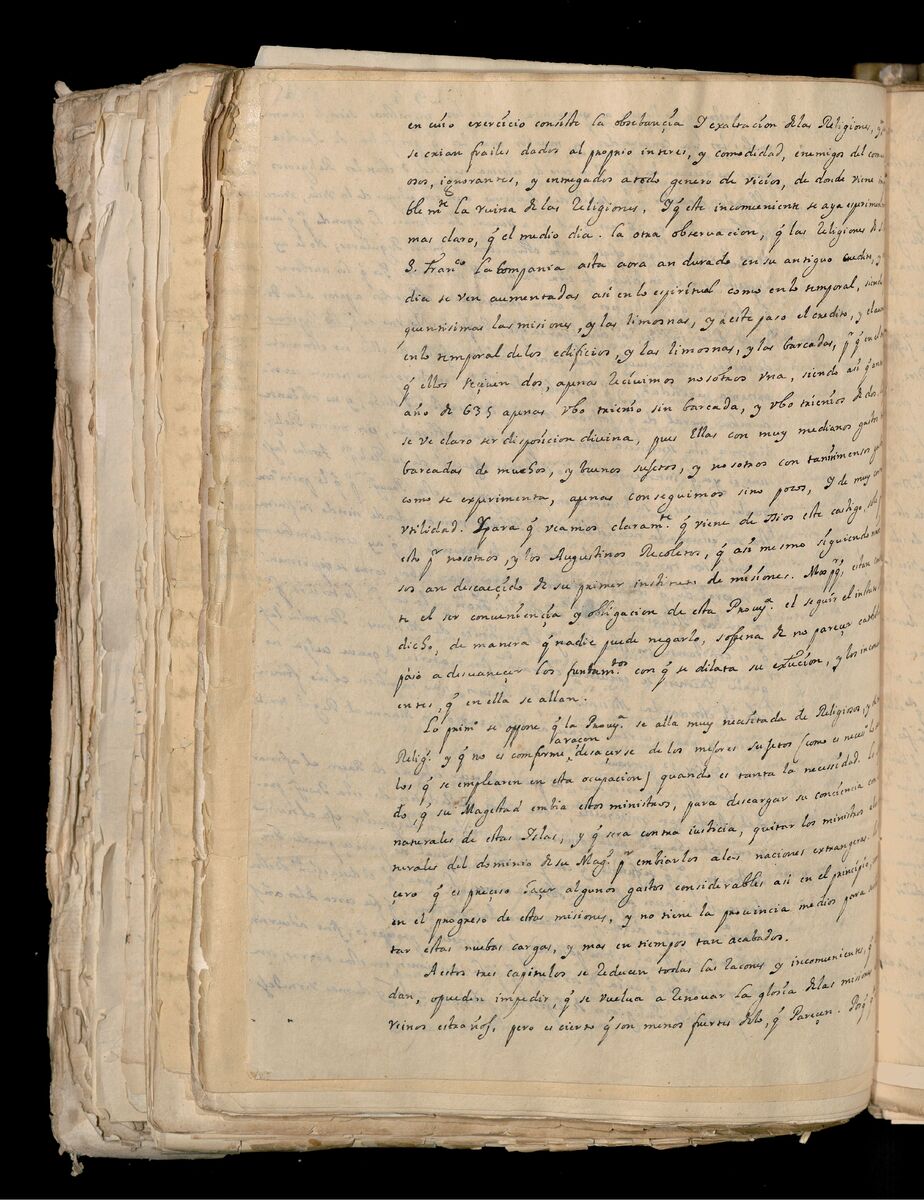 en cuio exercicio consiste la obserbançia y exaltacion de las Religiones,
se crian frailes dados al proprio interes, y comodidad, enemigos del
osos, ignorantes, y entregados a todo genero de vicios, de donde viene
blemte la ruina de las Religiones. Y q̃ este incomueniente se aya
mas claro, q̃ el medio dia. la otra observacion, q̃ las Religiones de
S. Franco la Compania asta aora an durado en su antiguo
dia se ven aumentadas asi en lo espiritual como en lo temporal,
quentisimas las misiones, y las limosnas, y a este paso el credito, y el
en lo temporal de los edificios, y las limosnas, y las barcadas, pr q̃ en el
q̃ ellos reçiven dos, apenas recivimos nosotros vna, siendo asi q̃
año de 635 apenas vbo trienio sin barcada, y vbo trienios de dos
se ve claro ser disposicion divina, pues ellas con muy medianos gastos
barcadas de muchos, y buenos sujetos, y nosotros con tan inmensos
como se experimenta, apenas conseguimos sino pocos, y de muy
vtilidad. Y para q̃ veamos claramte q̃ viene de Dios este castigo,
esto pr nosotros, y los Augustinos Recoletos, q̃ asi mesmo siguiendo
sos an descaeçido de su primer instituto de misiones. Mas pq̃,
te el ser conveniençia y obligacion de esta Prova el seguir el
dicho, de manera q̃ nadie puede negarlo, sopena de no pareçer
paso a desvaneçer los fundamtos con q̃ se dilata su exȩcucion, y los
entes, q̃ en ella se allan.
Lo primo se oppone q̃ la Prova se alla muy neçesitada de Religiosos, y
Relign y q̃ no es conforme a raçon desaçerse de los mejores sujetos (como es
los q̃ se emplearen en esta ocupacion) quando es tanta la necessidad.
do, q̃ su Magestad embia estos ministros, para descargar su conciencia
naturales de estas Islas, y q̃ sera contra iusticia, quitar los ministros
turales del dominio de su Magd pr embiarlos a les naciones extrangeras.
çero q̃ es preçiso haçer algunos gastos considerables asi en el principio,
en el progreso de estas misiones, y no tiene la provincia medios para
tar estas nuebas cargas, y mas en tiempos tan acabados.
A estos tres capitulos se reducen todas las raçones y incomuenientes, q̃
dan, o pueden impedir, q̃ se vuelua a renovar la gloria de las misiones
reinos estraños, pero es cierto q̃ son menos fuertes de lo, q̃ Pareçen.